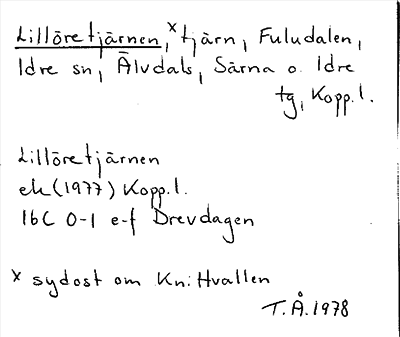 Lillöretjärnen, ˣtjärn, Fuludalen,
Idre sn, Älvdals, Särna o. Idre
tg, Kopp.l.
Lillöretjärnen
ek (1977) Kopp.l.
16C 0-1 e-f Drevdagen
x sydost om Knithvallen
T.Å. 1978